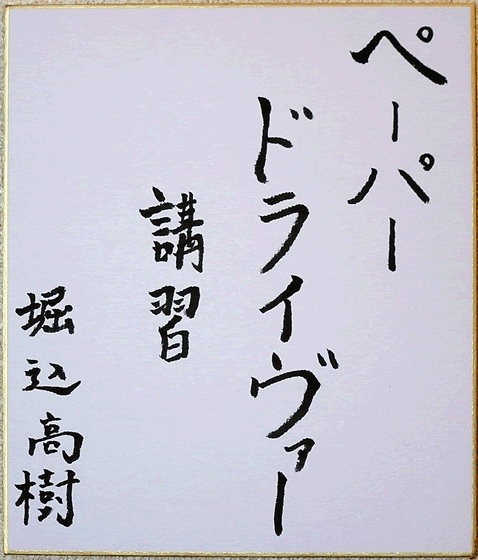 ペーパー
ドライヴァー
講習
堀込高樹